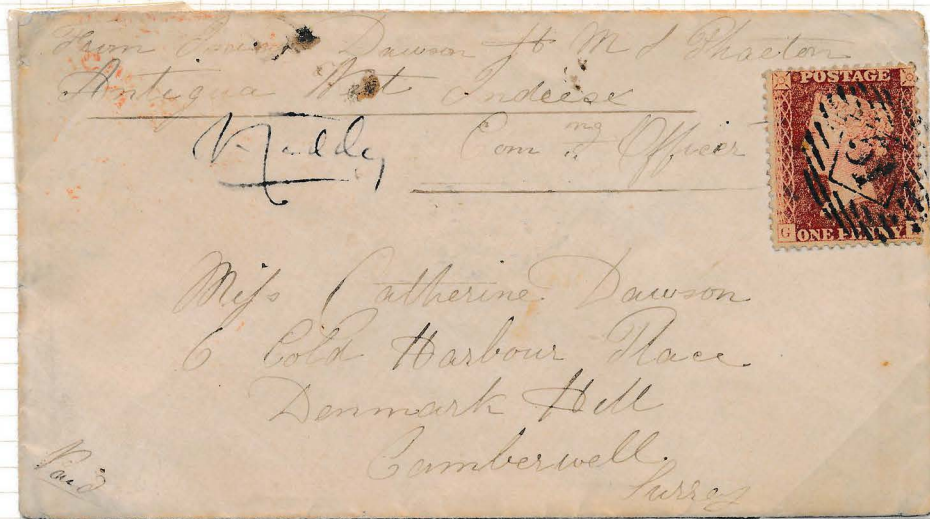 From Dawson H M S Phaeton
Antigua West Indeese
Com ng Officer
POSTAGE
ONE PENNY
G
Miss Catherine Dawson
6 Cold Harbour Place
Denmark Hill
Camberwell
Surrey
Paid